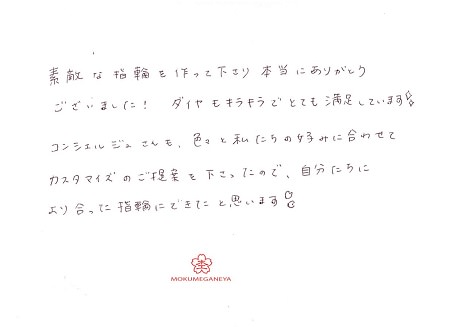 素敵な指輪を作って下さり本当にありがとう
ございました！ ダイヤもキラキラでとても満足しています
コンシェルジュさんも、色々と私たちの好みに合わせて
カスタマイズのご提案を下さったので、自分たちに
より合った指輪にできたと思います
MOKUMEGANEYA